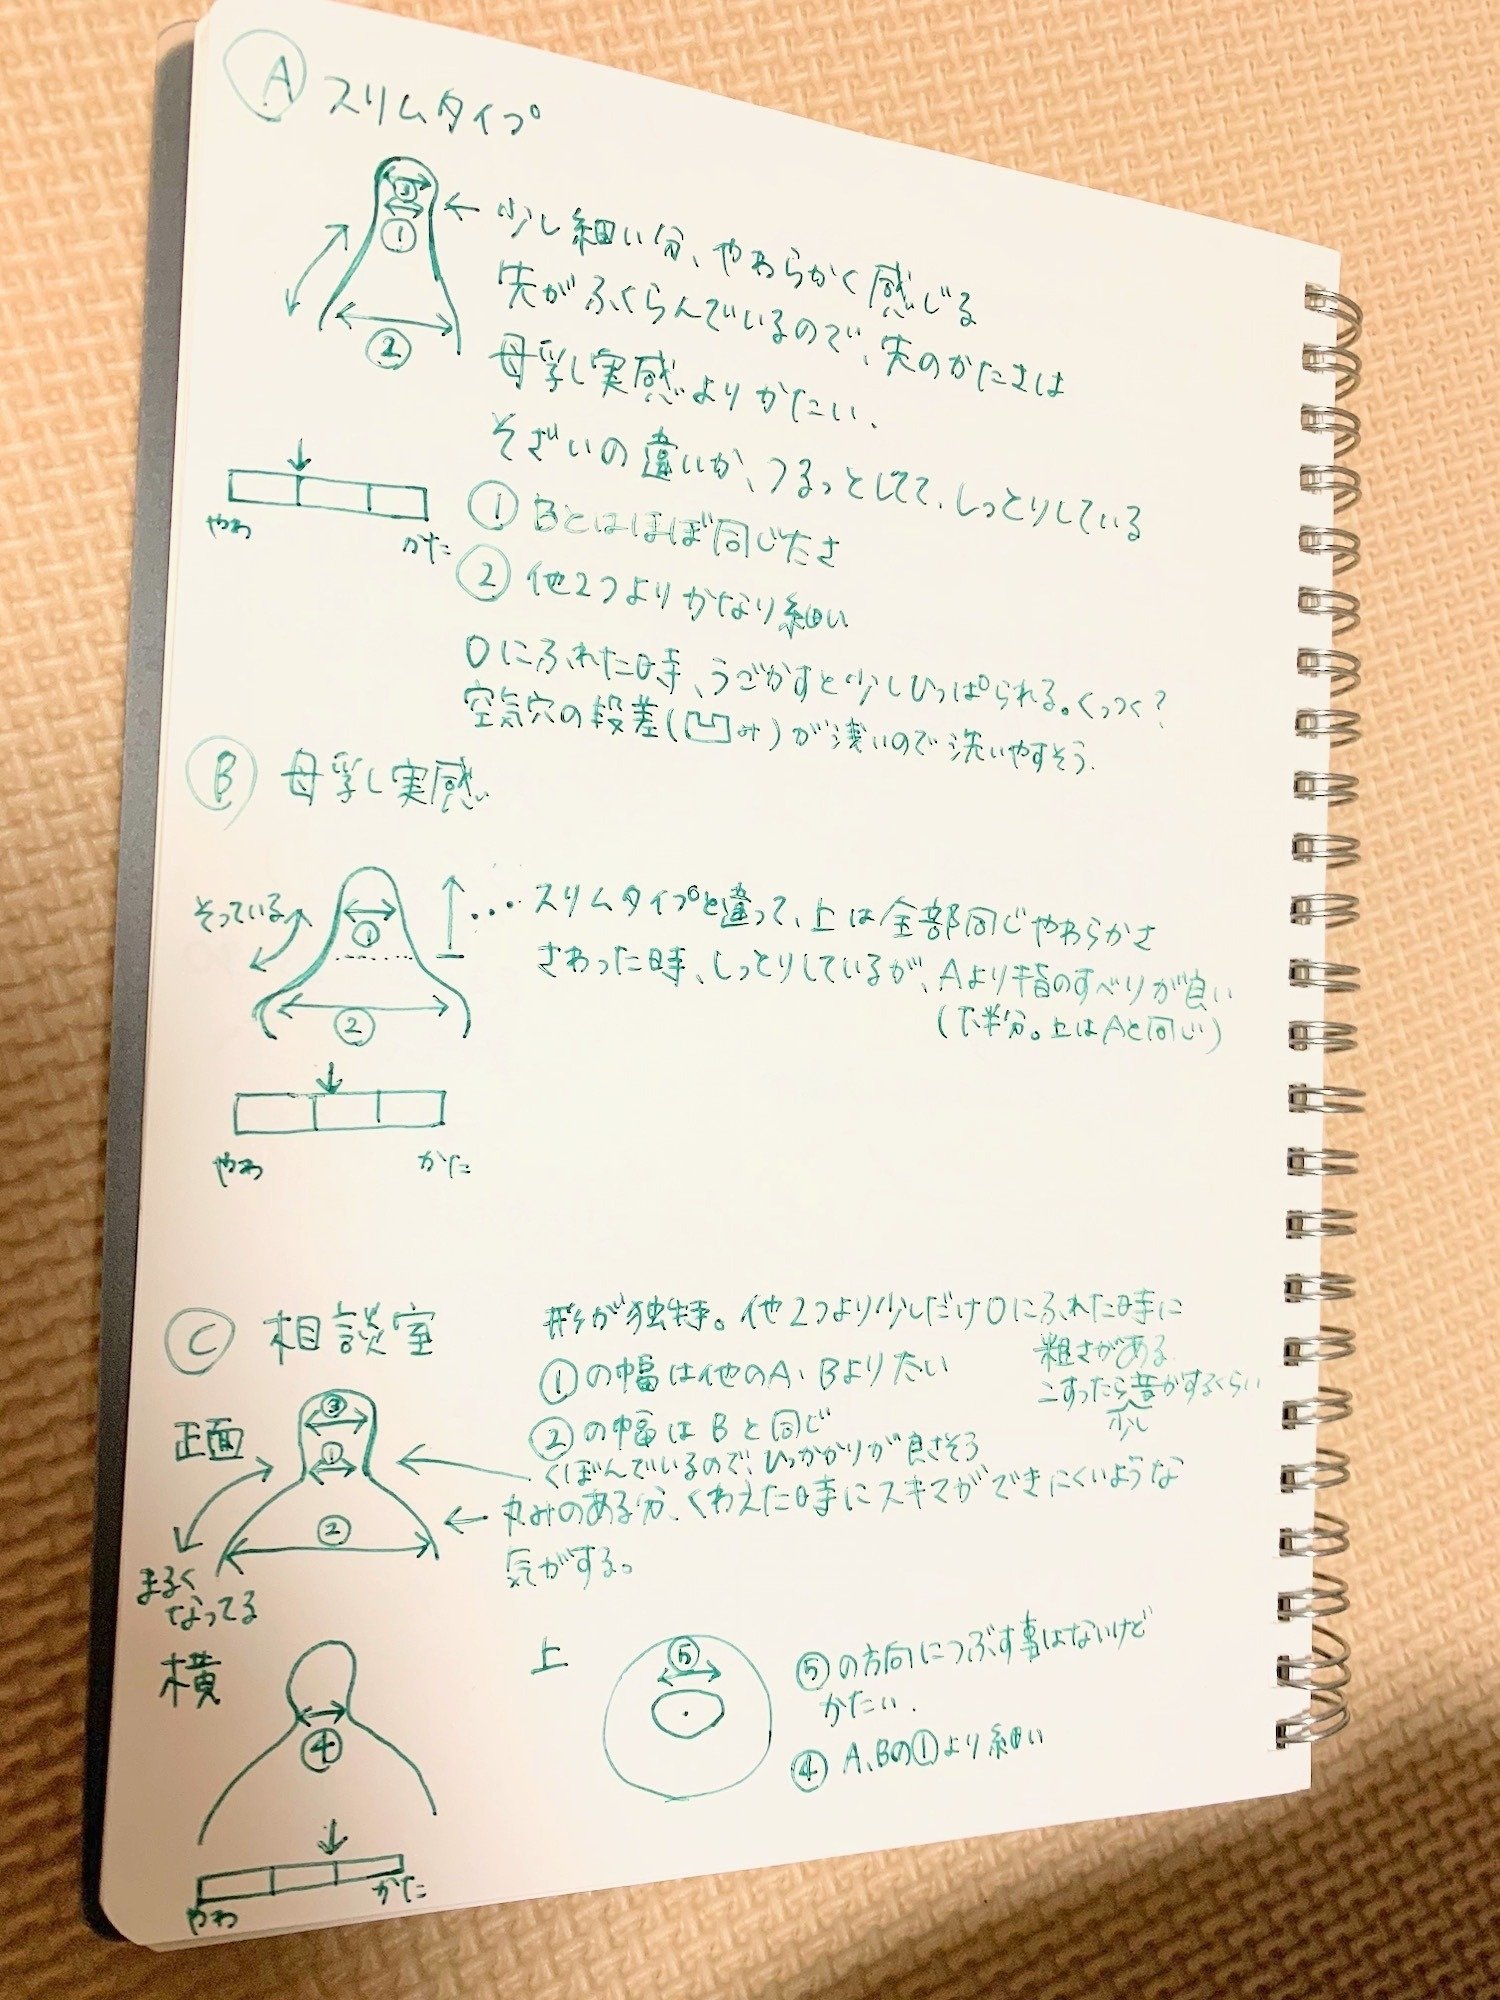 Ⓐ スリムタイプ
③
①
②
← 少し細い分、やわらかく感じる
先がふくらんでいるので、先のかたさは
母乳実感よりかたい.
そざいの違いか、つるっとしてて、しっとりしている
やわ かた
① Bとはほぼ同じ太さ
② 他2つよりかなり細い
口にふれた時、うごかすと少しひっぱられる。くっつく?
空気穴の段差(凹み)が浅いので洗いやすそう.
Ⓑ 母乳実感
そっている
①
②
… スリムタイプと違って、上は全部同じやわらかさ
さわった時、しっとりしているが、Aより指のすべりが良い
(下半分。上はAと同じ)
やわ かた
Ⓒ 相談室
形が独特。他2つより少しだけ口にふれた時に
粗さがある
こすったら音がするくらい
少し
①の幅は他のA、Bより太い
②の幅はBと同じ
くぼんでいるので、ひっかかりが良さそう
丸みのある分、くわえた時にスキマができにくいような
気がする。
正面
③
①
②
まるく
なってる
横
④
上
⑤
⑤の方向につぶす事はないけど
かたい.
④ A、Bの①より細い
やわ かた